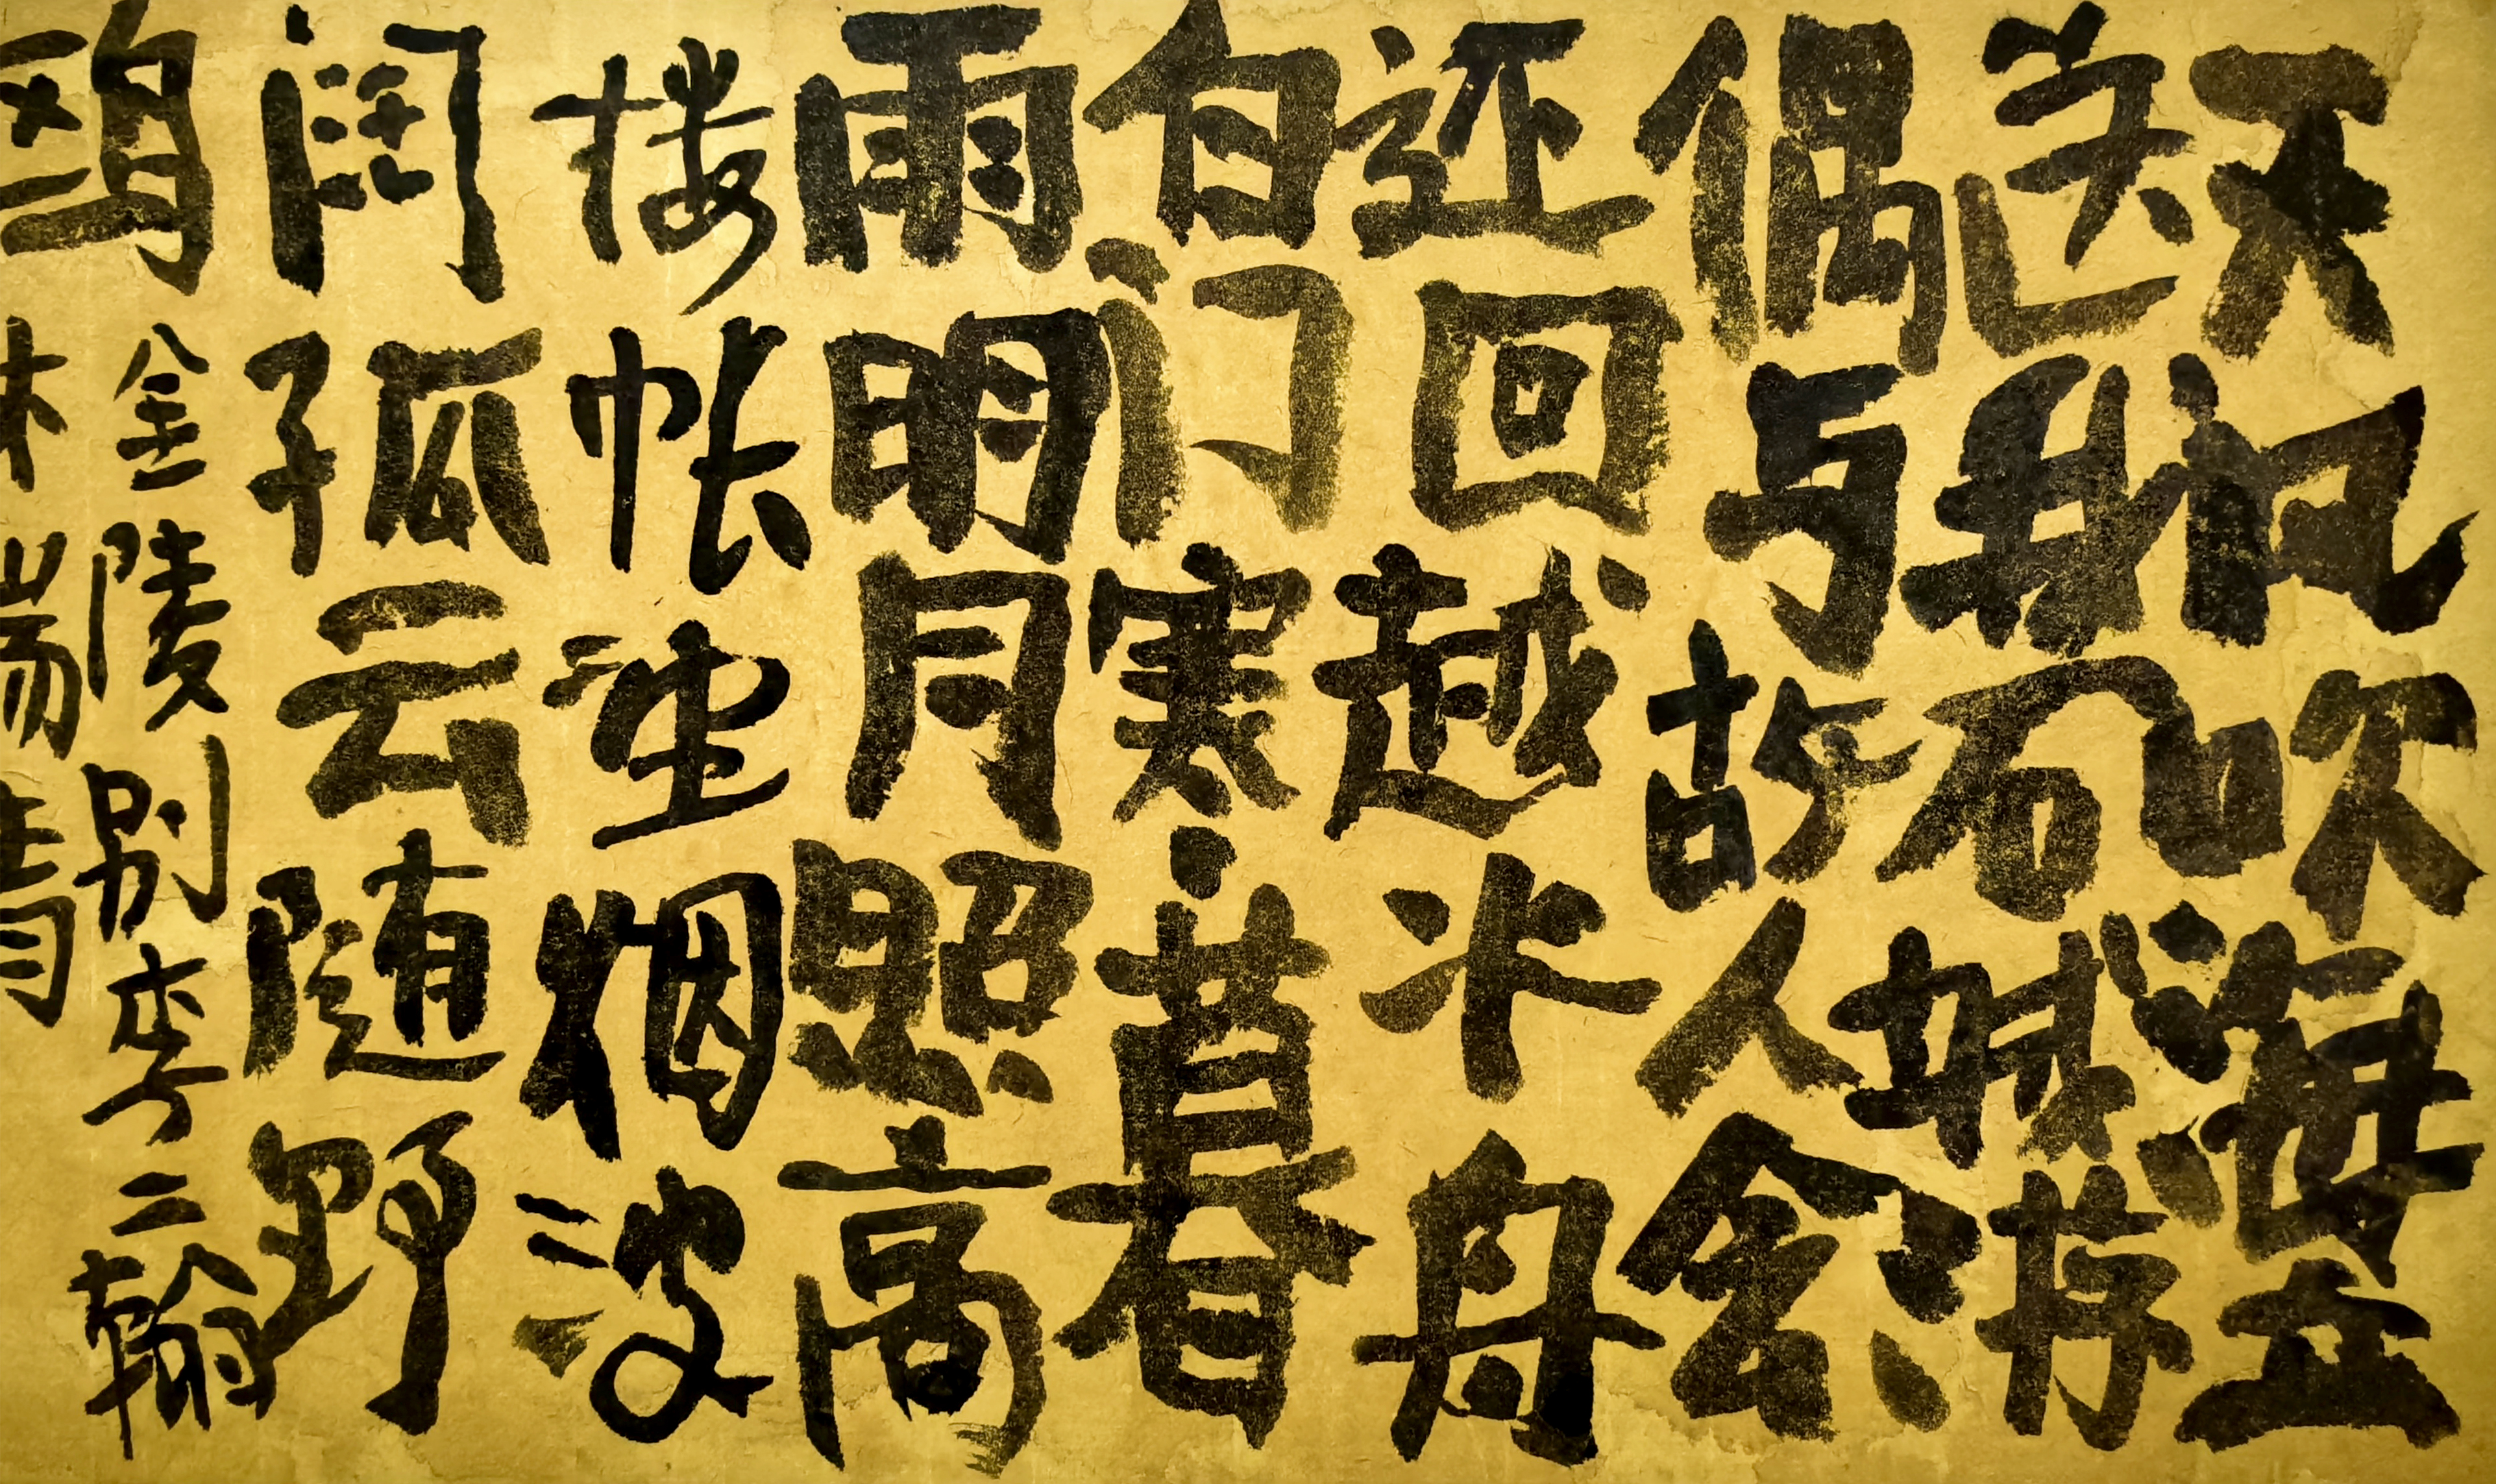 天风吹海立
送我石城游
偶与故人会
还回越水舟
白门寒暮
雨明月照高
楼帐望烟波
阔孤云随野
鸥 金陵别李二翰
林